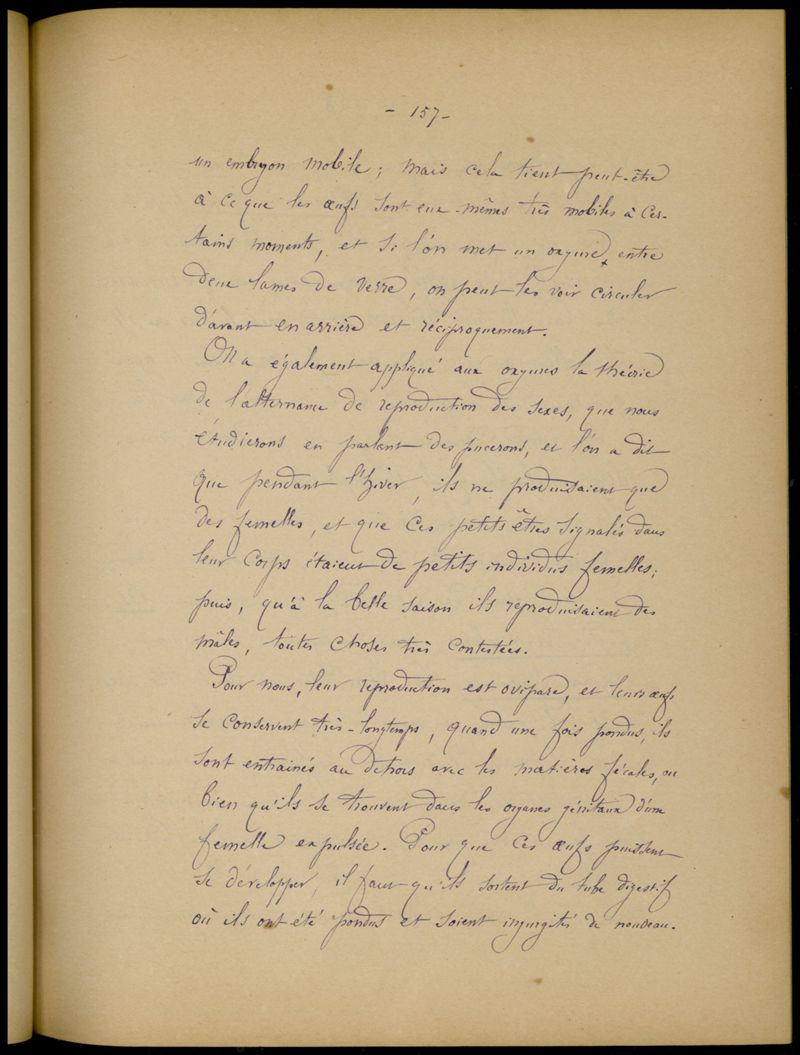 - 157 -
un embryon mobile ; mais cela tient peut-être
à ce que les œufs sont eux-mêmes très mobiles à cer-
tains moments, et si l'on met un oxyure, entre
deux lames de verre, on peut les voir circuler
d'avant en arrière et réciproquement.
On a également appliqué aux oxyures la théorie
de l'alternance de reproduction des sexes, que nous
étudierons en parlant des pucerons, et l'on a dit
que pendant l'hiver, ils ne produisaient que
des femelles, et que ces petits êtres signalés dans
leur corps étaient de petits individus femelles ;
puis, qu'à la belle saison ils reproduisaient des
mâles, toutes choses très contestées.
Pour nous, leur reproduction est ovipare, et leurs œufs
se conservent très-longtemps, quand une fois pondus, ils
sont entrainés au dehors avec les matières fécales, ou
bien qu'ils se trouvent dans les organes génitaux d'une
femelle expulsée. Pour que ces œufs puissent
se développer, il faut qu'ils sortent du tube digestif
où ils ont été pondus et soient ingurgités de nouveau.